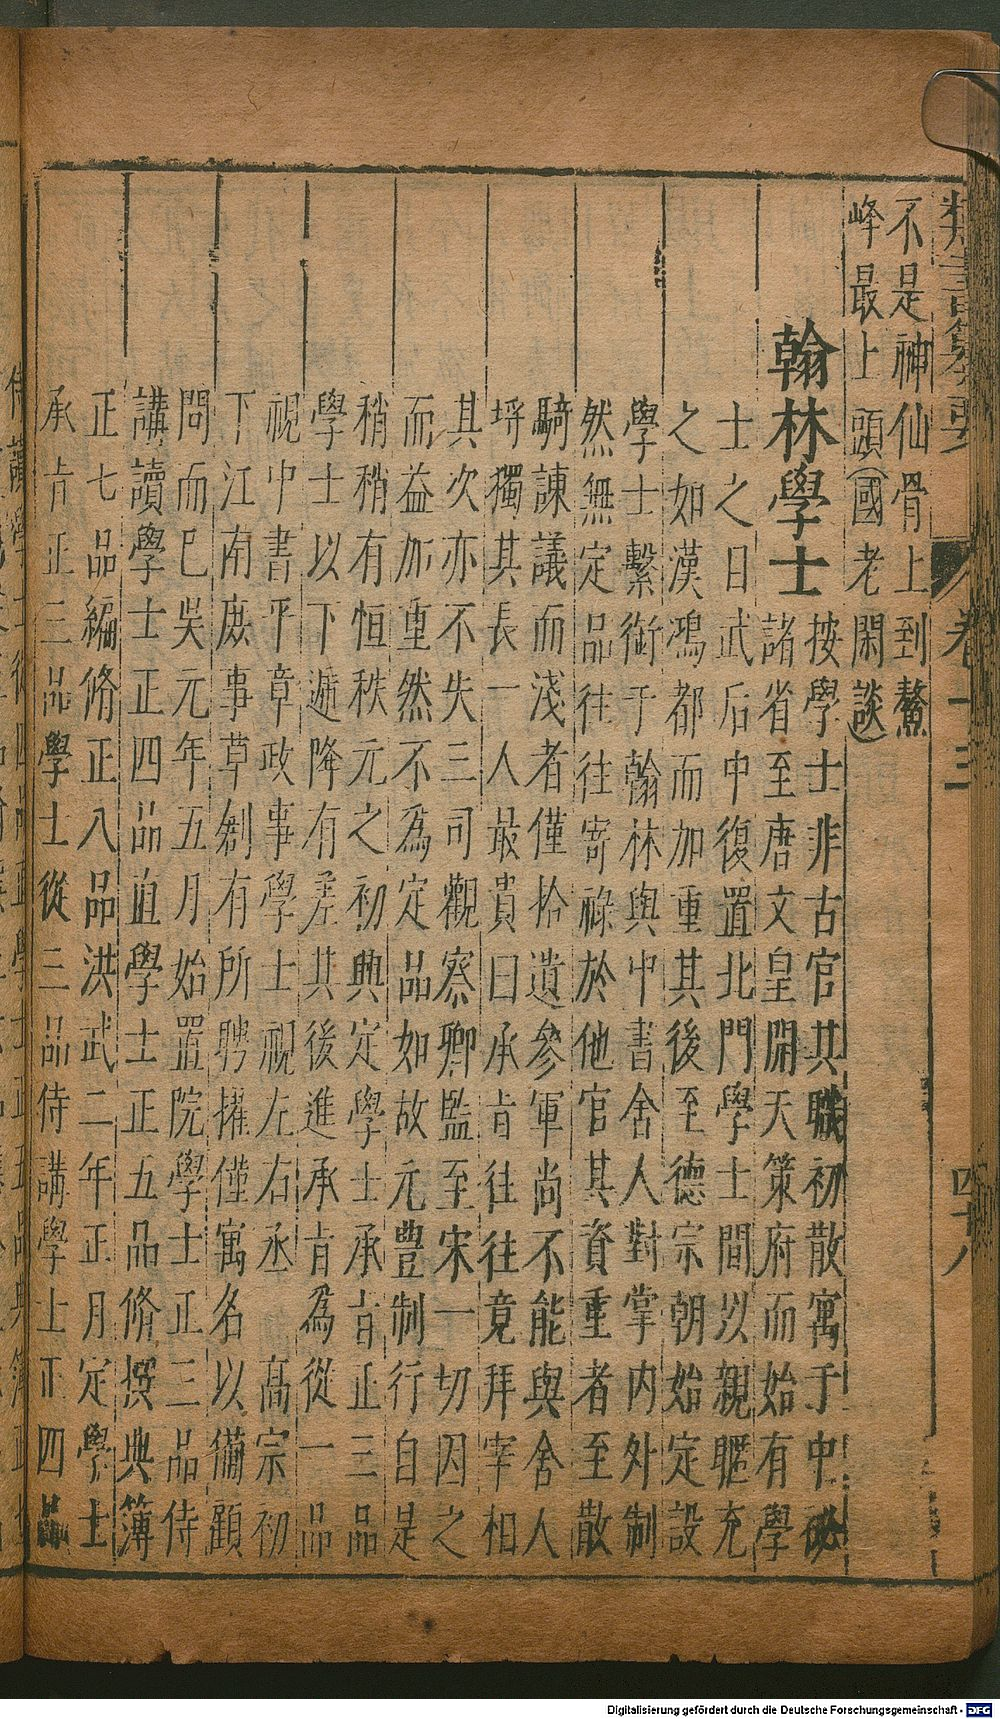 類書纂要
卷十三
四十八
不是神仙骨上到鰲
峰最上頭(國老閑談)
翰林學士
按學士非古官其職初散寓于中祕
諸省至唐文皇開天策府而始有學
士之日武后中復置北門學士間以親暱充
之如漢鴻都而加重其後至德宗朝始定設
學士繫銜于翰林與中書舍人對掌内外制
然無定品往往寄祿於他官其資重者至散
騎諫議而淺者僅拾遺參軍尚不能與舍人
埒獨其長一人最貴曰承旨往往竟拜宰相
其次亦不失三司觀察卿監至宋一切因之
而益加重然不為定品如故元豊制行自是
稍稍有恒秩元之初典定學士承旨正三品
學士以下遞降有差其後進承旨為從一品
視中書平章政事學士視左右丞 高宗初
下江南庶事草創有所聘擢僅寓名以備顧
問而巳吳元年五月始置院學士正三品侍
講讀學士正四品直學士正五品脩撰典簿
正七品編脩正八品洪武二年正月定學士
承旨正三品學士從三品侍講學士正四品
Digitalisierung gefördert durch die Deutsche Forschungsgemeinschaft - DFG